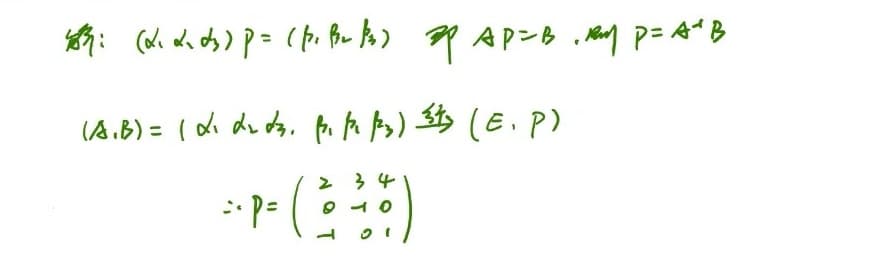 解: (α₁ α₂ α₃) P = (β₁ β₂ β₃) 即 AP=B . 则 P= A⁻¹ B
(A,B) = ( α₁ α₂ α₃, β₁ β₂ β₃) 行变换 (E, P)
∴ P= ( 2 3 4
0 -1 0
-1 0 1 )